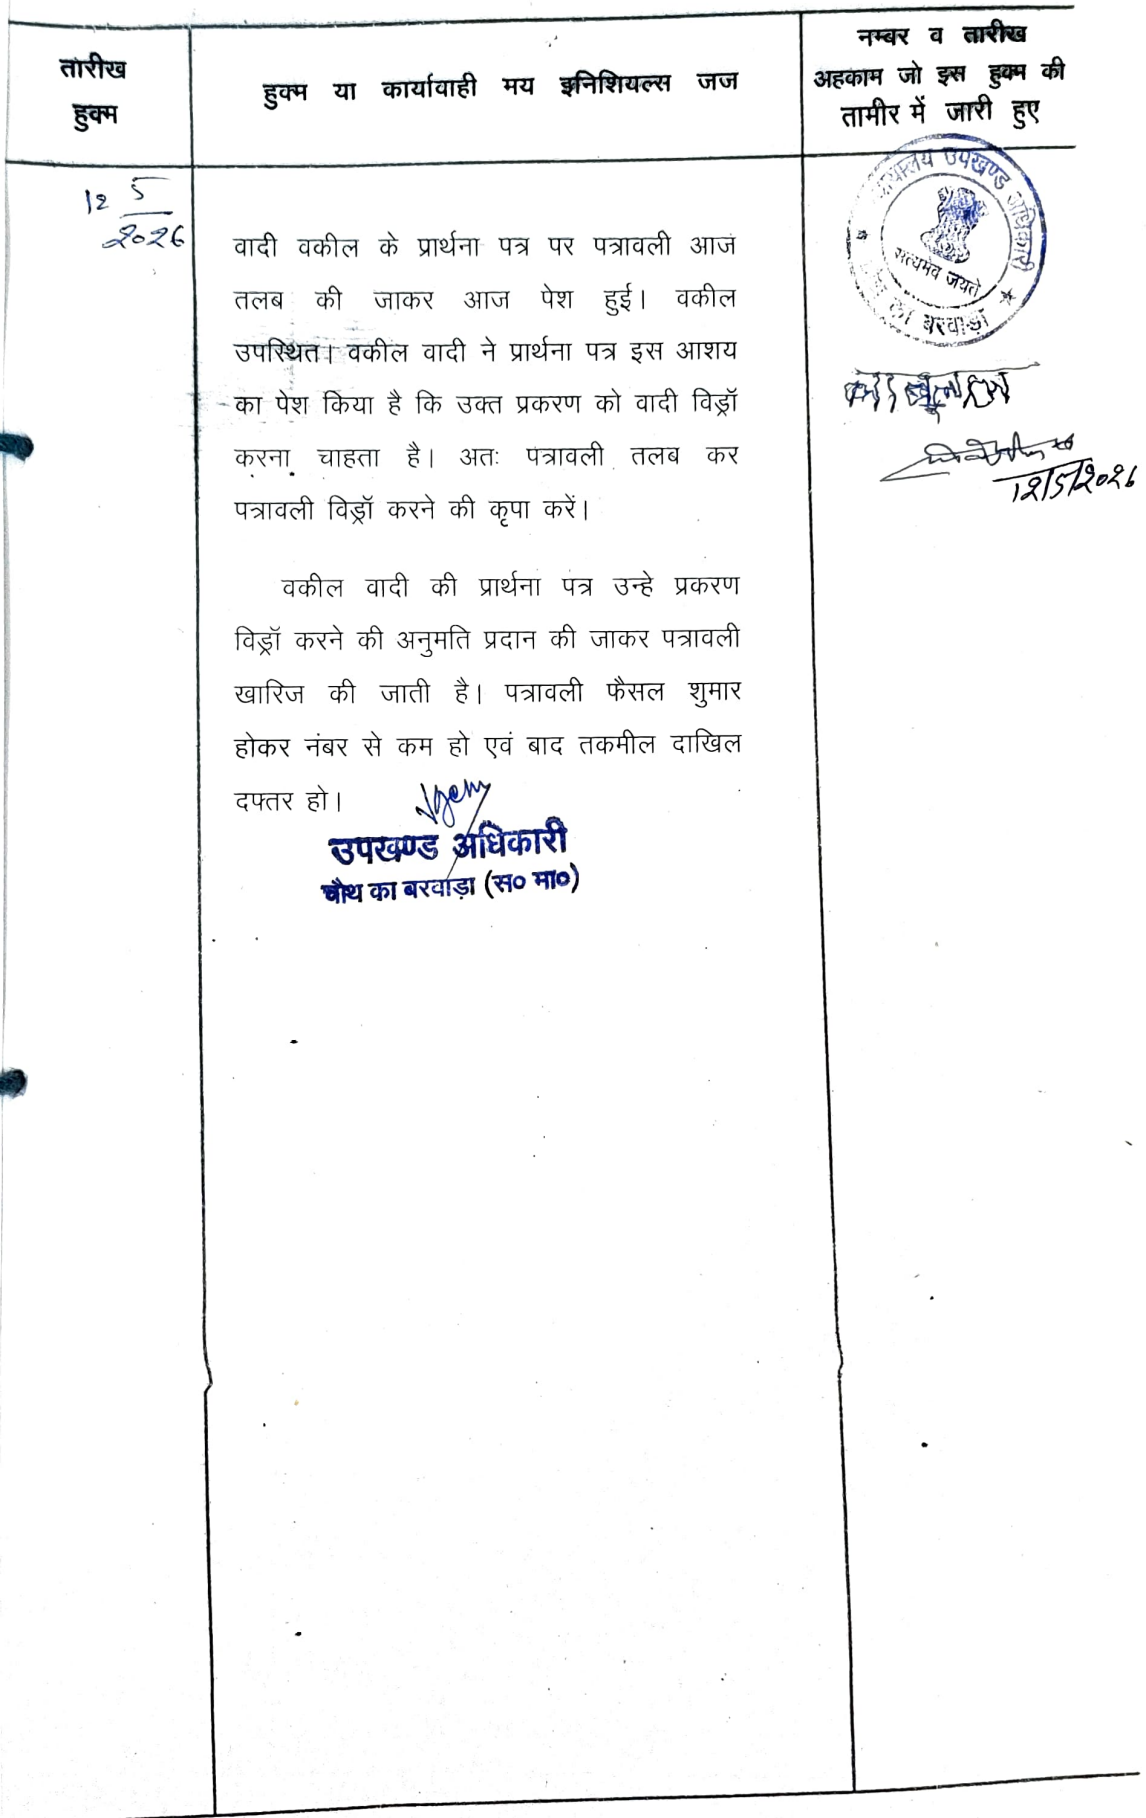 तारीख
हुक्म
हुक्म या कार्यावाही मय इनिशियल्स जज
नम्बर व तारीख
अहकाम जो इस हुक्म की
तामीर में जारी हुए
12 5
2026
वादी वकील के प्रार्थना पत्र पर पत्रावली आज
तलब की जाकर आज पेश हुई। वकील
उपस्थित। वकील वादी ने प्रार्थना पत्र इस आशय
का पेश किया है कि उक्त प्रकरण को वादी विड्रॉ
करना चाहता है। अतः पत्रावली तलब कर
पत्रावली विड्रॉ करने की कृपा करें।
वकील वादी की प्रार्थना पत्र उन्हे प्रकरण
विड्रॉ करने की अनुमति प्रदान की जाकर पत्रावली
खारिज की जाती है। पत्रावली फैसल शुमार
होकर नंबर से कम हो एवं बाद तकमील दाखिल
दफ्तर हो।
उपखण्ड अधिकारी
चौथ का बरवाड़ा (स० मा०)
उपखण्ड अधिकारी
सत्यमेव जयते
का बरवाड़ा
12/5/2026